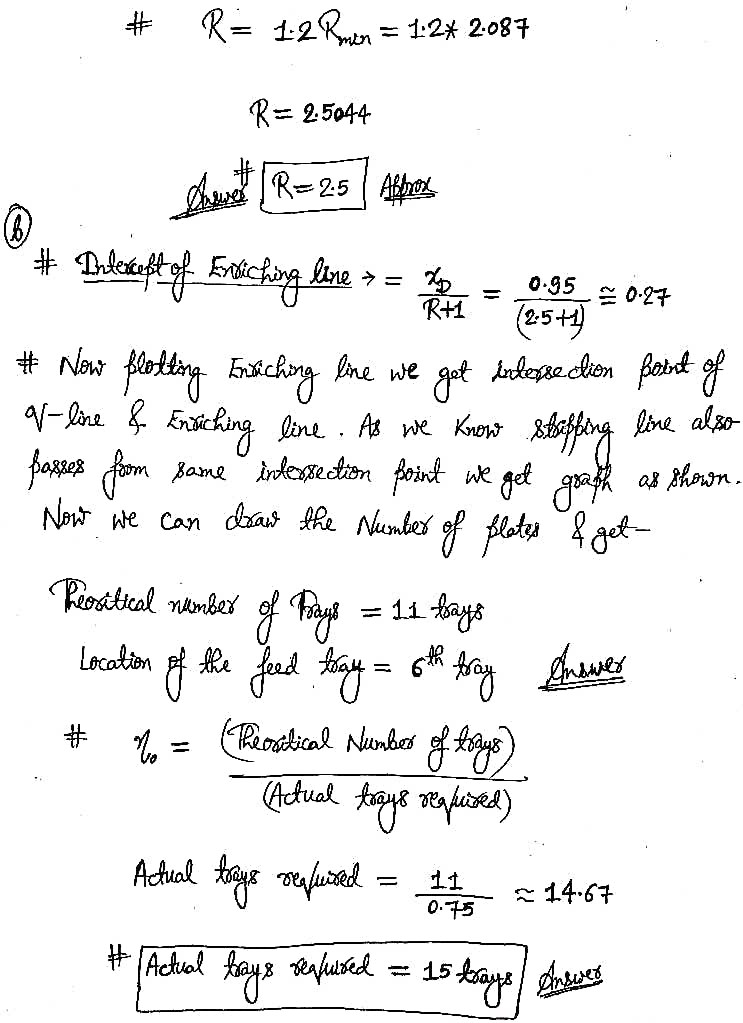 # R = 1.2 Rmin = 1.2* 2.087
R = 2.5044
Answer # R = 2.5 Approx
(b)
# Intercept of Enriching line → = xD/(R+1) = 0.95/(2.5+1) ≅ 0.27
# Now plotting Enriching line we get intersection point of
q-line & Enriching line. As we know stripping line also
passes from same intersection point we get graph as shown.
Now we can draw the Number of plates & get-
Theoritical number of Trays = 11 trays
Location of the feed tray = 6th tray Answer
# η₀ = (Theoritical Number of trays)/(Actual trays required)
Actual trays required = 11/0.75 ≈ 14.67
# Actual trays required = 15 trays Answer